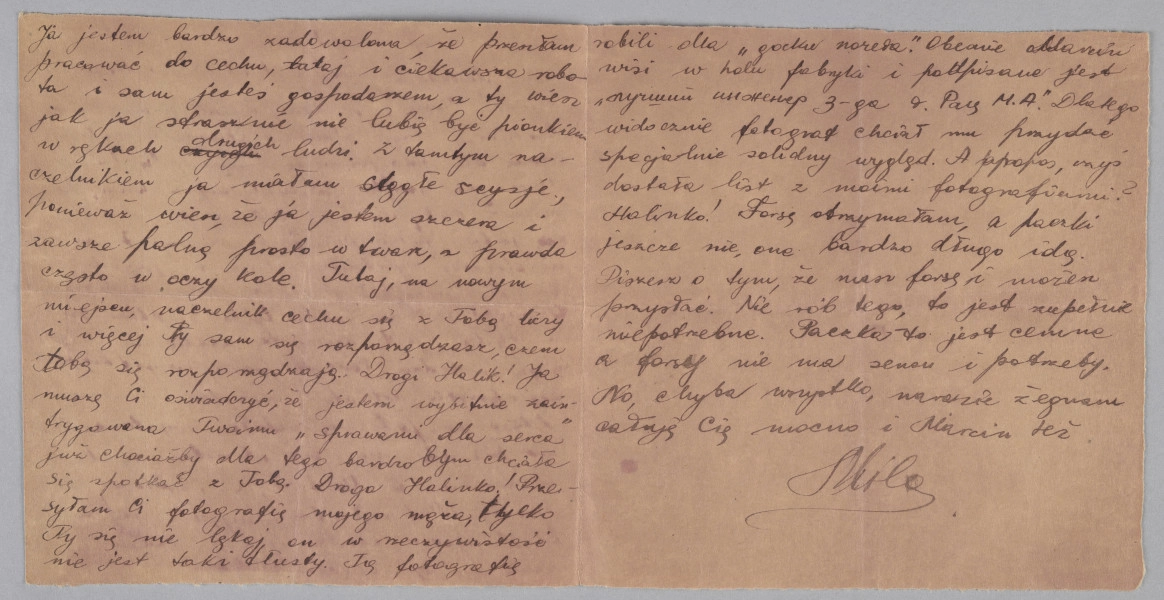 Ja jestem bardzo zadowolona że przeszłam
pracować do cechu, tutaj i ciekawsza robo-
ta i sam jesteś gospodarzem, a ty wiesz
jak ja strasznie nie lubię być pionkiem
w rękach drugich ludzi. Z tamtym na-
czelnikiem ja miałam ciągłe scysje,
ponieważ wiesz, że ja jestem szczera i
zawsze palnę prosto w twarz, a prawda
często w oczy kole. Tutaj, na nowym
miejscu, naczelnik cechu się z Tobą liczy
i więcej Ty sam się rozporządzasz, czem
Tobą się rozporządzają. Drogi Halik! Ja
muszę Ci oświadczyć, że jestem wybitnie zain-
trygowana Twoimu „sprawamu dla serca"
już chociażby dla tego bardzo bym chciała
się spotkać z Tobą. Droga Halinko! Prze-
syłam Ci fotografię mojego męża, tylko
Ty się nie lękaj on w rzeczywistość
nie jest taki tłusty. Tą fotografię
robili dla „ . Obecnie
wisi w holu fabryki i podpisane jest
„лучший инженер 3-га т. Рац М.А". Dlatego
widocznie fotograf chciał mu przydać
specjalnie solidny wygląd. A propos, czyś
dostała list z moimi fotografiami?
Halinko! Forsę otrzymałam, a paczki
jeszcze nie, one bardzo długo idą.
Piszesz o tym, że masz forsę i możesz
przysłać. Nie rób tego, to jest zupełnie
niepotrzebne. Paczka to jest cenne
a forsy nie ma sensu i potrzeby.
No, chyba wszystko, narazie żegnam
całuję Cię mocno i Marcin też.
Mila